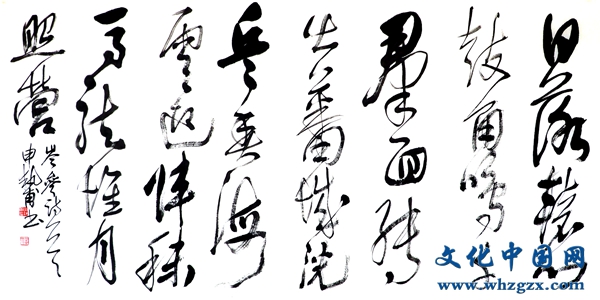 日落轅門
鼓角鳴千
羣面縛
出蕃城洗
兵魚海
雲迎陣秣
馬龍堆月
照營
岑參詩
文化中国网
www.whzgzx.com